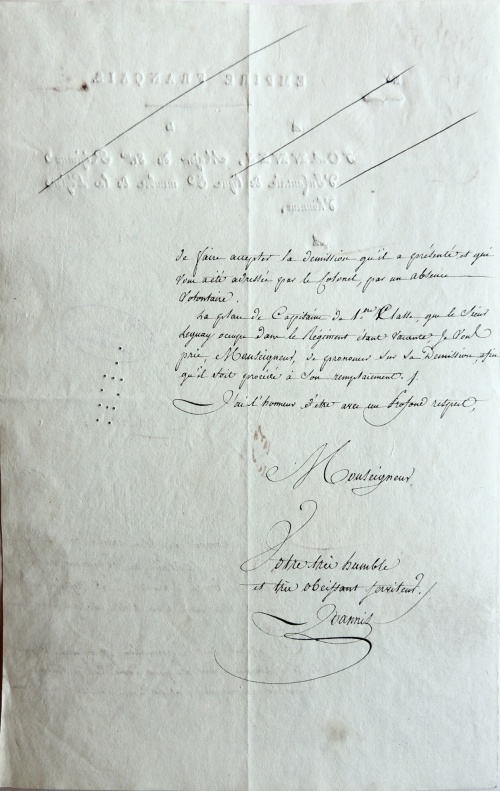 EMPIRE FRANÇAIS
JOANNIS, Major du 
d'Infanterie de ligne, membre de la Légion
d'Honneur,
de faire accepter la demission qu'il a présenté et qui
vous a été adressée par le Colonel, par un absence
Volontaire.
La place de Capitaine de 1.ere Classe, que le Sieur
Leguay occupe dans le Régiment étant vacante, Je vous
prie, Monseigneur, de prononcer sur sa Demission afin
qu'il soit procédé à son remplacement.
J'ai l'honneur d'être avec un profond respect,
Monseigneur,
Votre très humble
et très obeissant serviteur.
Joannis